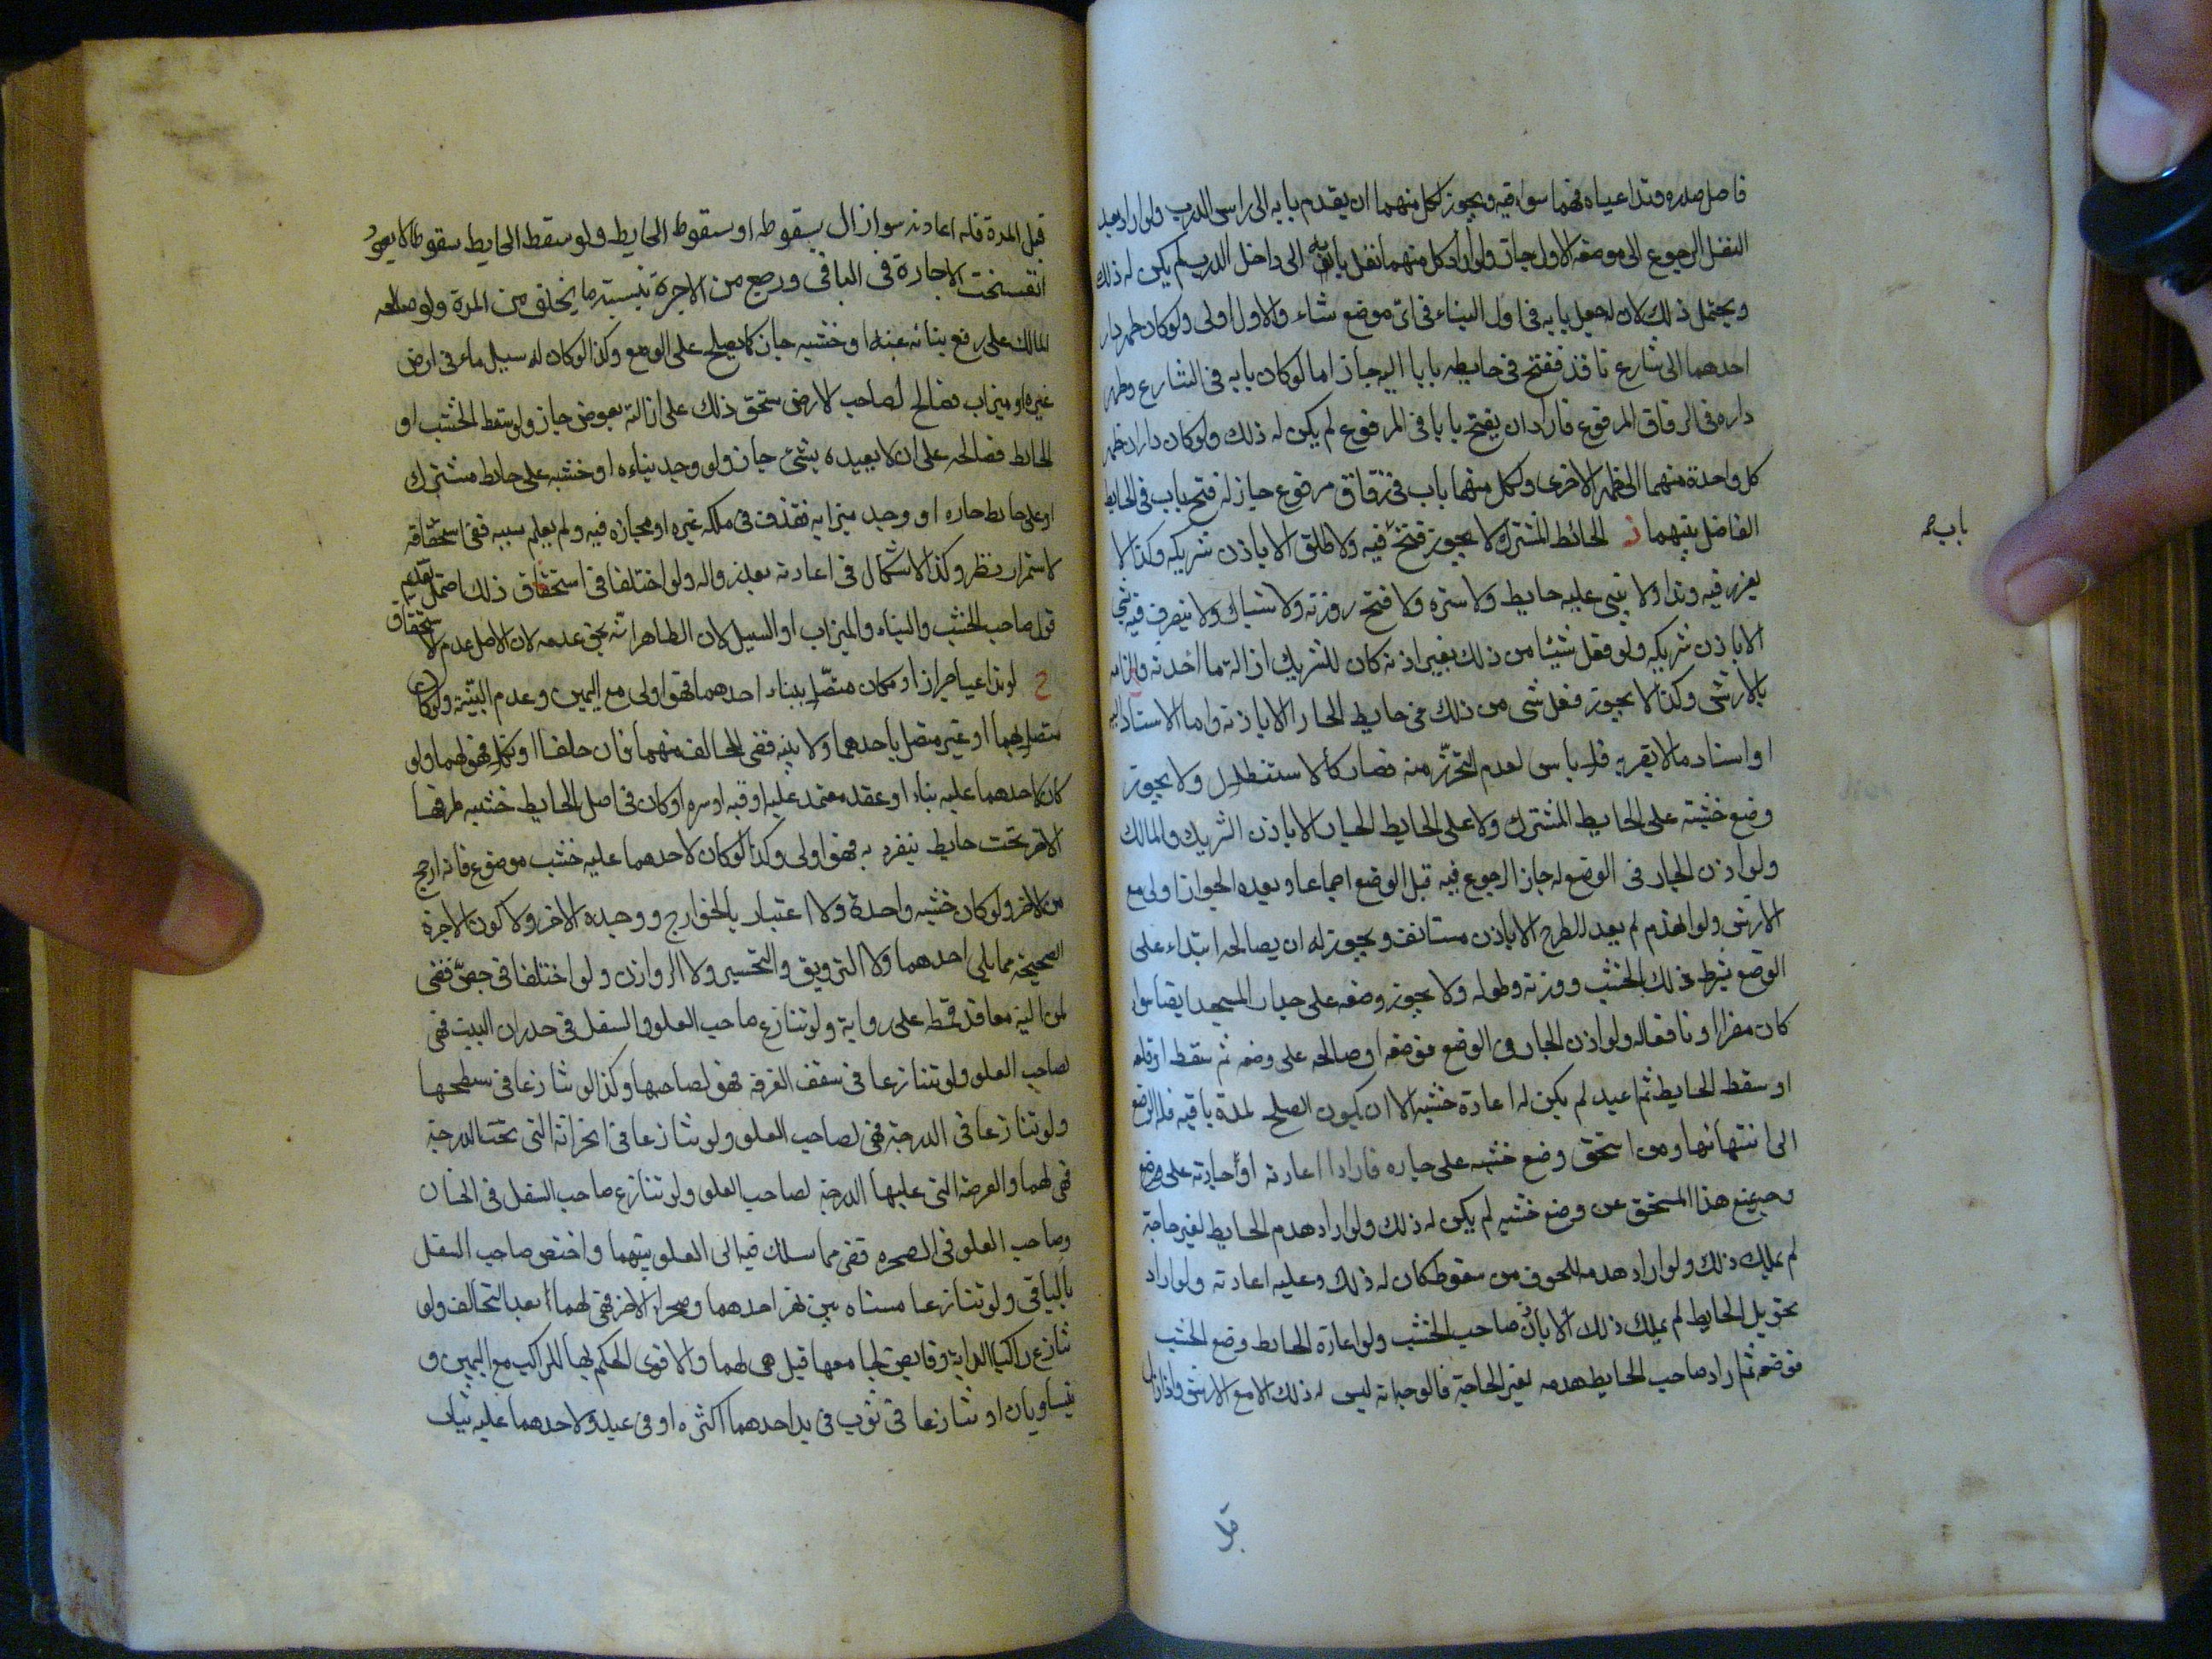 فاصل صدره وتداعياه فهما سواء فيه ويجوز لكل منهما ان يقدم بابه الى راس الدرب ولو اراد بعد
النقل الرجوع الى موضعه الاول جاز ولو اراد كل منهما نقل بابه الى داخل الدرب لم يكن له ذلك
ويحتمل ذلك لان له جعل بابه في اول البناء في اى موضع شاء والاول اولى ولو كان ظهر دار
احدهما الى شارع نافذ ففتح في حايطه بابا اليه جاز اما لو كان بابه في الشارع وظهر
داره في الزقاق المرفوع فاراد ان يفتح بابا في المرفوع لم يكن له ذلك ولو كان داران ظهر
كل واحدة منهما الى ظهر الاخرى ولكل منهما باب في زقاق مرفوع جاز له فتح باب في الحايط
الفاصل بينهما ز الحائط المشترك لا يجوز فتح فيه ولا طاق الا باذن شريكه وكذا لا
يغرز فيه وتدا ولا يبنى عليه حايط ولا ستره ولا فتح روزنه ولا شباك ولا يتصرف فيه بشي
الا باذن شريكه ولو فعل شيئا من ذلك بغير اذنه كان للشريك ازالة ما احدثه والزامه
بالارش وكذا لا يجوز فعل شى من ذلك في حايط الجار الا باذنه واما الاستناد اليه
او اسناد ما لا يضر به فلا باس لعدم التحرز منه فصار كالاستظلال ولا يجوز
وضع خشبته على الحايط المشترك ولا على الحايط الجار الا باذن الشريك والمالك
ولو اذن الجار في الوضع له جاز الرجوع فيه قبل الوضع اجماعا وبعده الجواز اولى مع
الارش ولو انهدم لم يعد الطرح الا باذن مستانف ويجوز له ان يصالحه ابتداء على
الوضع بشرط عدد الخشب ووزنه وطوله ولا يجوز وضعه على جدار المسجد ايضا سواء
كان مضرا او نافعا له ولو اذن الجار في الوضع فوضعه او صالحه على وضعه ثم سقط او قلعه
او سقط الحايط ثم اعيد لم يكن له اعادة خشبه الا ان يكون الصلح لمدة باقيه فله الوضع
الى انتهائها ومن استحق وضع خشبه على جداره فاراد اعارته او اجارته على وضع
وجه يمنع هذا المستحق من وضع خشبه لم يكن له ذلك ولو اراد هدم الحايط لغير حاجة
لم يملك ذلك ولو اراد هدمه للخوف من سقوطه كان له ذلك وعليه اعادته ولو اراد
تحويل الحايط لم يملك ذلك الا باذن صاحب الخشب ولو اعاره الحايط وضع الخشب
فوضعه ثم اراد صاحب الحايط هدمه لغير الحاجة فالوجه انه ليس له ذلك الا مع الارش واذا زال
قبل
قبل المدة فله اعادته سواء زال بسقوطه او سقوط الحايط ولو سقط الحايط سقوطا لا يعود
انفسخت الاجارة في الباقي ورجع من الاجرة بنسبة ما يخلف من المدة ولو صالحه
المالك على رفع بنائه عنه او خشبه جاز كما يصلح على الوضع وكذا لو كان له سيل ماء في ارض
غيره او ميزاب فصالح صاحب الارض مستحق ذلك على ازالته بعوض جاز ولو سقط الخشب او
الحائط فصالحه على ان لا يعيده بشئ جاز ولو وجد بناءه او خشبه على حايط مشترك
او على حايط جاره او وجد ميزابه يقذف في ملك غيره او مجازه فيه ولم يعلم سببه ففي استحقاقه
لاستمرار نظر وكذا الاشكال في اعادته بعد زواله ولو اختلفا في استحقاق ذلك احتمل تقديم
قول صاحب الخشب والبناء والميزاب او السيل لان الظاهر انه بحق وعدمه لان الاصل عدم الاستحقاق
ح لو تداعيا جدارا وكان متصلا ببناء احدهما فهو اولى مع اليمين وعدم البينة ولو كان
متصلا بهما او غير متصل باحدهما ولا بينه ففي يد الحالف منهما فان حلفا او نكلا فهو لهما ولو
كان لاحدهما عليه بناء او عقد معتمد عليه او قبه او ستره او كان في اصل الحايط خشبه طرفها
الاخر تحت حايط ينفرد به فهو اولى وكذا لو كان لاحدهما عليه خشب موضوع فانه ارجح
من الاخر ولو كان خشبه واحدة ولا اعتبار بالخوارج ووجهه الاخر ولا كون الاجرة
الصحيحة مما يلي احدهما ولا التزويق والتحسين ولا الروازن ولو اختلفا في خص قضى
لمن اليه معاقد قمطه على رواية ولو تنازع صاحب العلو والسفل في جدران البيت فهى
لصاحب العلو ولو تنازعا في سقف الغرفة فهو لصاحبها وكذا لو تنازعا في سطحها
ولو تنازعا في الدرجة فهى لصاحب العلو ولو تنازعا في الخزانة التي تحت الدرجة
فهى لهما والعرصة التي عليها الدرجة لصاحب العلو ولو تنازع صاحب السفل في الخان
وصاحب العلو في الصحره قضى مما سلك فيه الى العلو بينهما واختص صاحب السفل
بالباقي ولو تنازعا مسناه بين نهر احدهما وصحراء الاخر فهى لهما بعد التحالف ولو
تنازع راكب الدابة وقابض لجامها قيل هى لهما والاقوى الحكم بها للراكب مع اليمين و
يتساويان لو تنازعا في ثوب في يد احدهما اكثره او في عبد ولاحدهما عليه ثياب